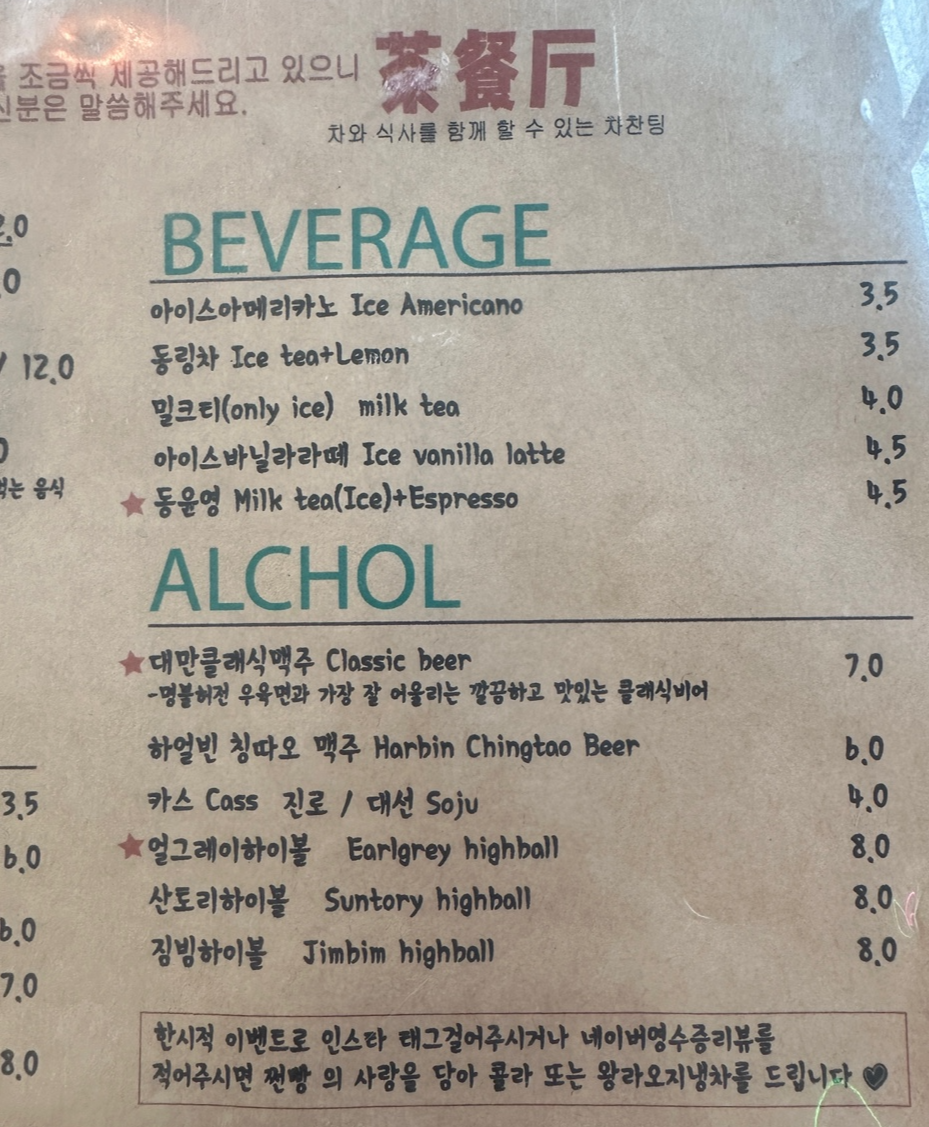 조금씩 제공해드리고 있으니
신분은 말씀해주세요.
茶餐厅
차와 식사를 함께 할 수 있는 차찬팅
2.0
.0
/ 12.0
0
먹는 음식
3.5
6.0
6.0
7.0
8.0
BEVERAGE
아이스아메리카노 Ice Americano 3.5
동링차 Ice tea+Lemon 3.5
밀크티(only ice) milk tea 4.0
아이스바닐라라떼 Ice vanilla latte 4.5
동윤영 Milk tea(Ice)+Espresso 4.5
ALCHOL
대만클래식맥주 Classic beer 7.0
-명불허전 우육면과 가장 잘 어울리는 깔끔하고 맛있는 클래식비어
하얼빈 칭따오 맥주 Harbin Chingtao Beer 6.0
카스 Cass 진로 / 대선 Soju 4.0
얼그레이하이볼 Earlgrey highball 8.0
산토리하이볼 Suntory highball 8.0
짐빔하이볼 Jimbim highball 8.0
한시적 이벤트로 인스타 태그걸어주시거나 네이버영수증리뷰를
적어주시면 쩐빵 의 사랑을 담아 콜라 또는 왕라오지냉차를 드립니다 ♥